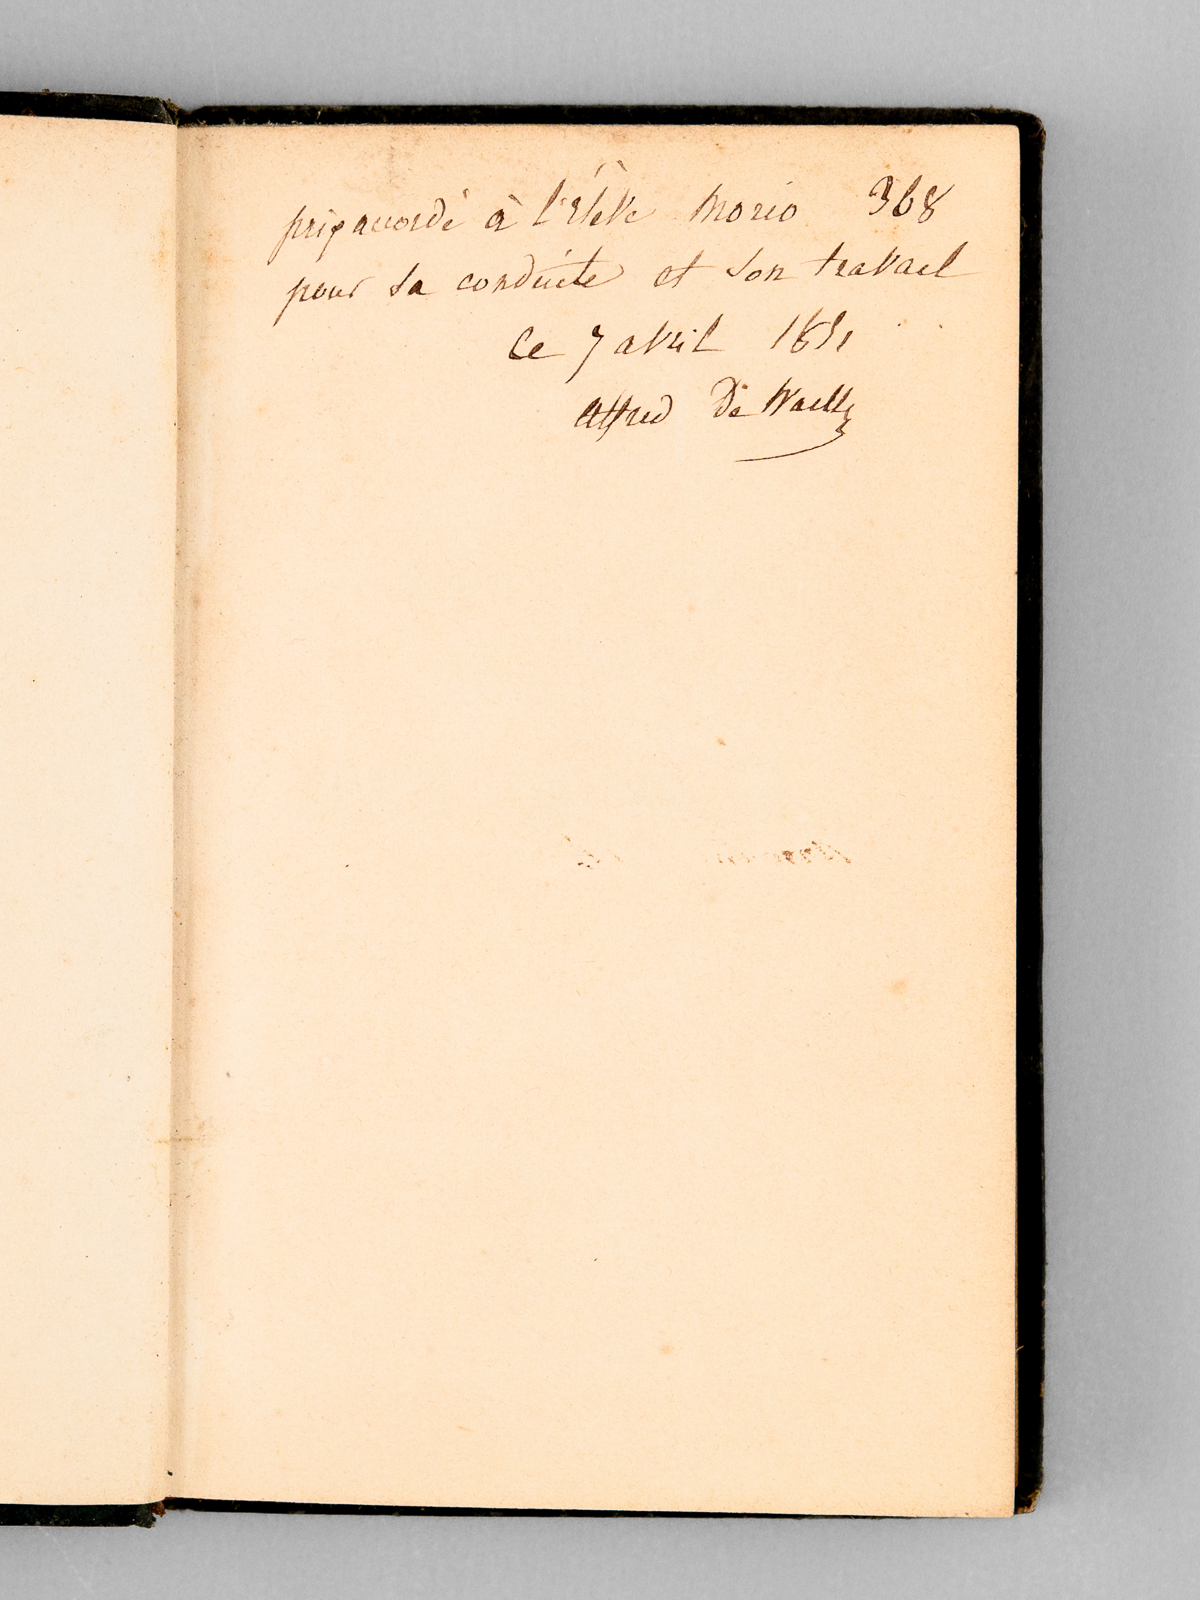 prix accordé à l'élève Morio 368
pour sa conduite et son travail
Ce 7 avril 1851
Alfred De Wailly